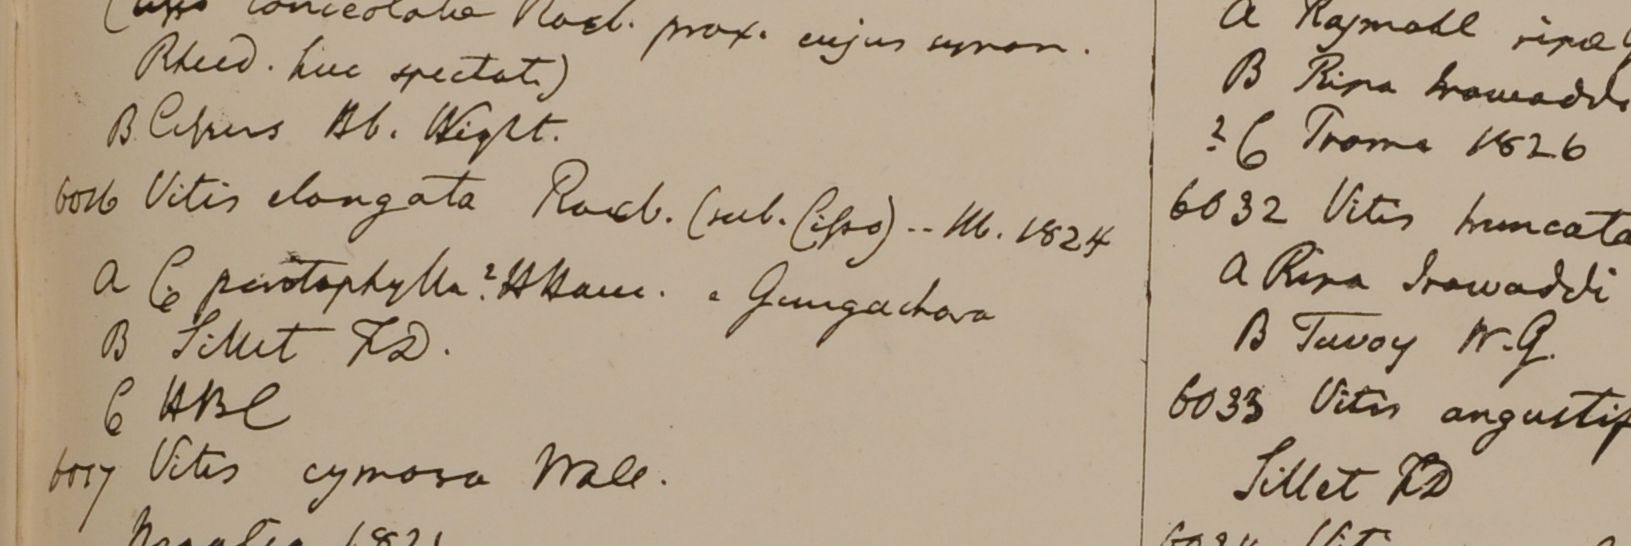 lanceolata Roxb. prox. cujus synon.
Rheed. huc spectat)
B Cissus Hb. Wight.
6016 Vitis elongata Roxb. (sub. Cisso) -- M. 1824
a C pentaphylla? HHam. Gungachora
B Sillet FD.
C HBC
6017 Vitis cymosa Wall.
1821
a Rajmahl ripa
B Ripa Irawaddi
? C Prome 1826
6032 Vitis truncata
a Ripa Irawaddi
B Tavoy W.G.
6033 Vitis angustif
Sillet FD